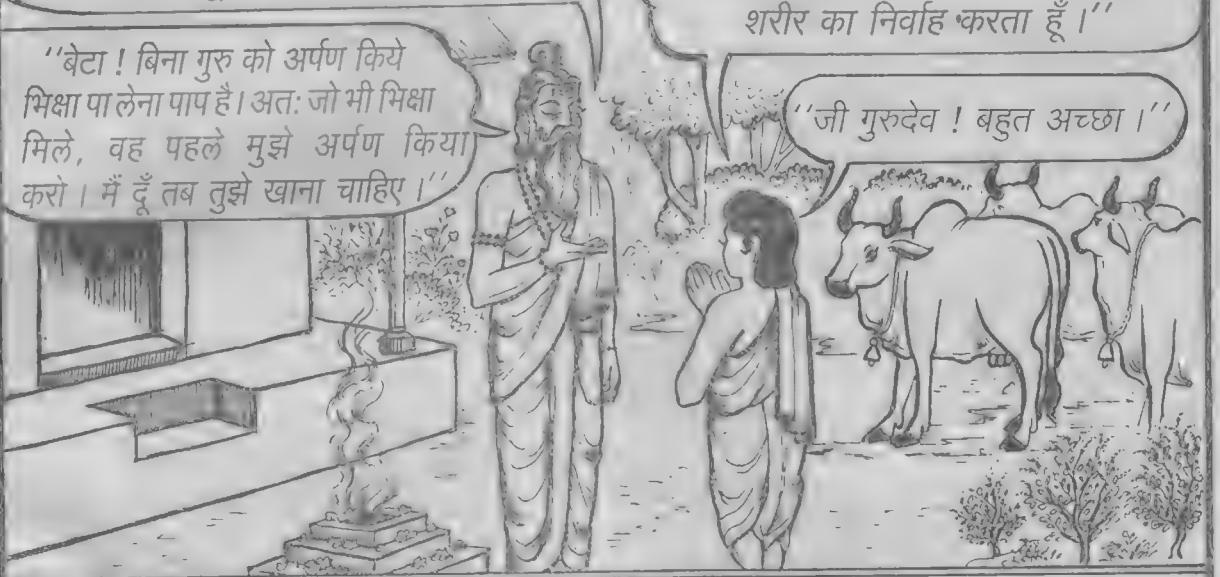 शरीर का निर्वाह करता हूँ ।’’
‘‘बेटा ! बिना गुरु को अर्पण किये
भिक्षा पा लेना पाप है। अतः जो भी भिक्षा
मिले, वह पहले मुझे अर्पण किया
करो । मैं दूँ तब तुझे खाना चाहिए ।’’
‘‘जी गुरुदेव ! बहुत अच्छा ।’’